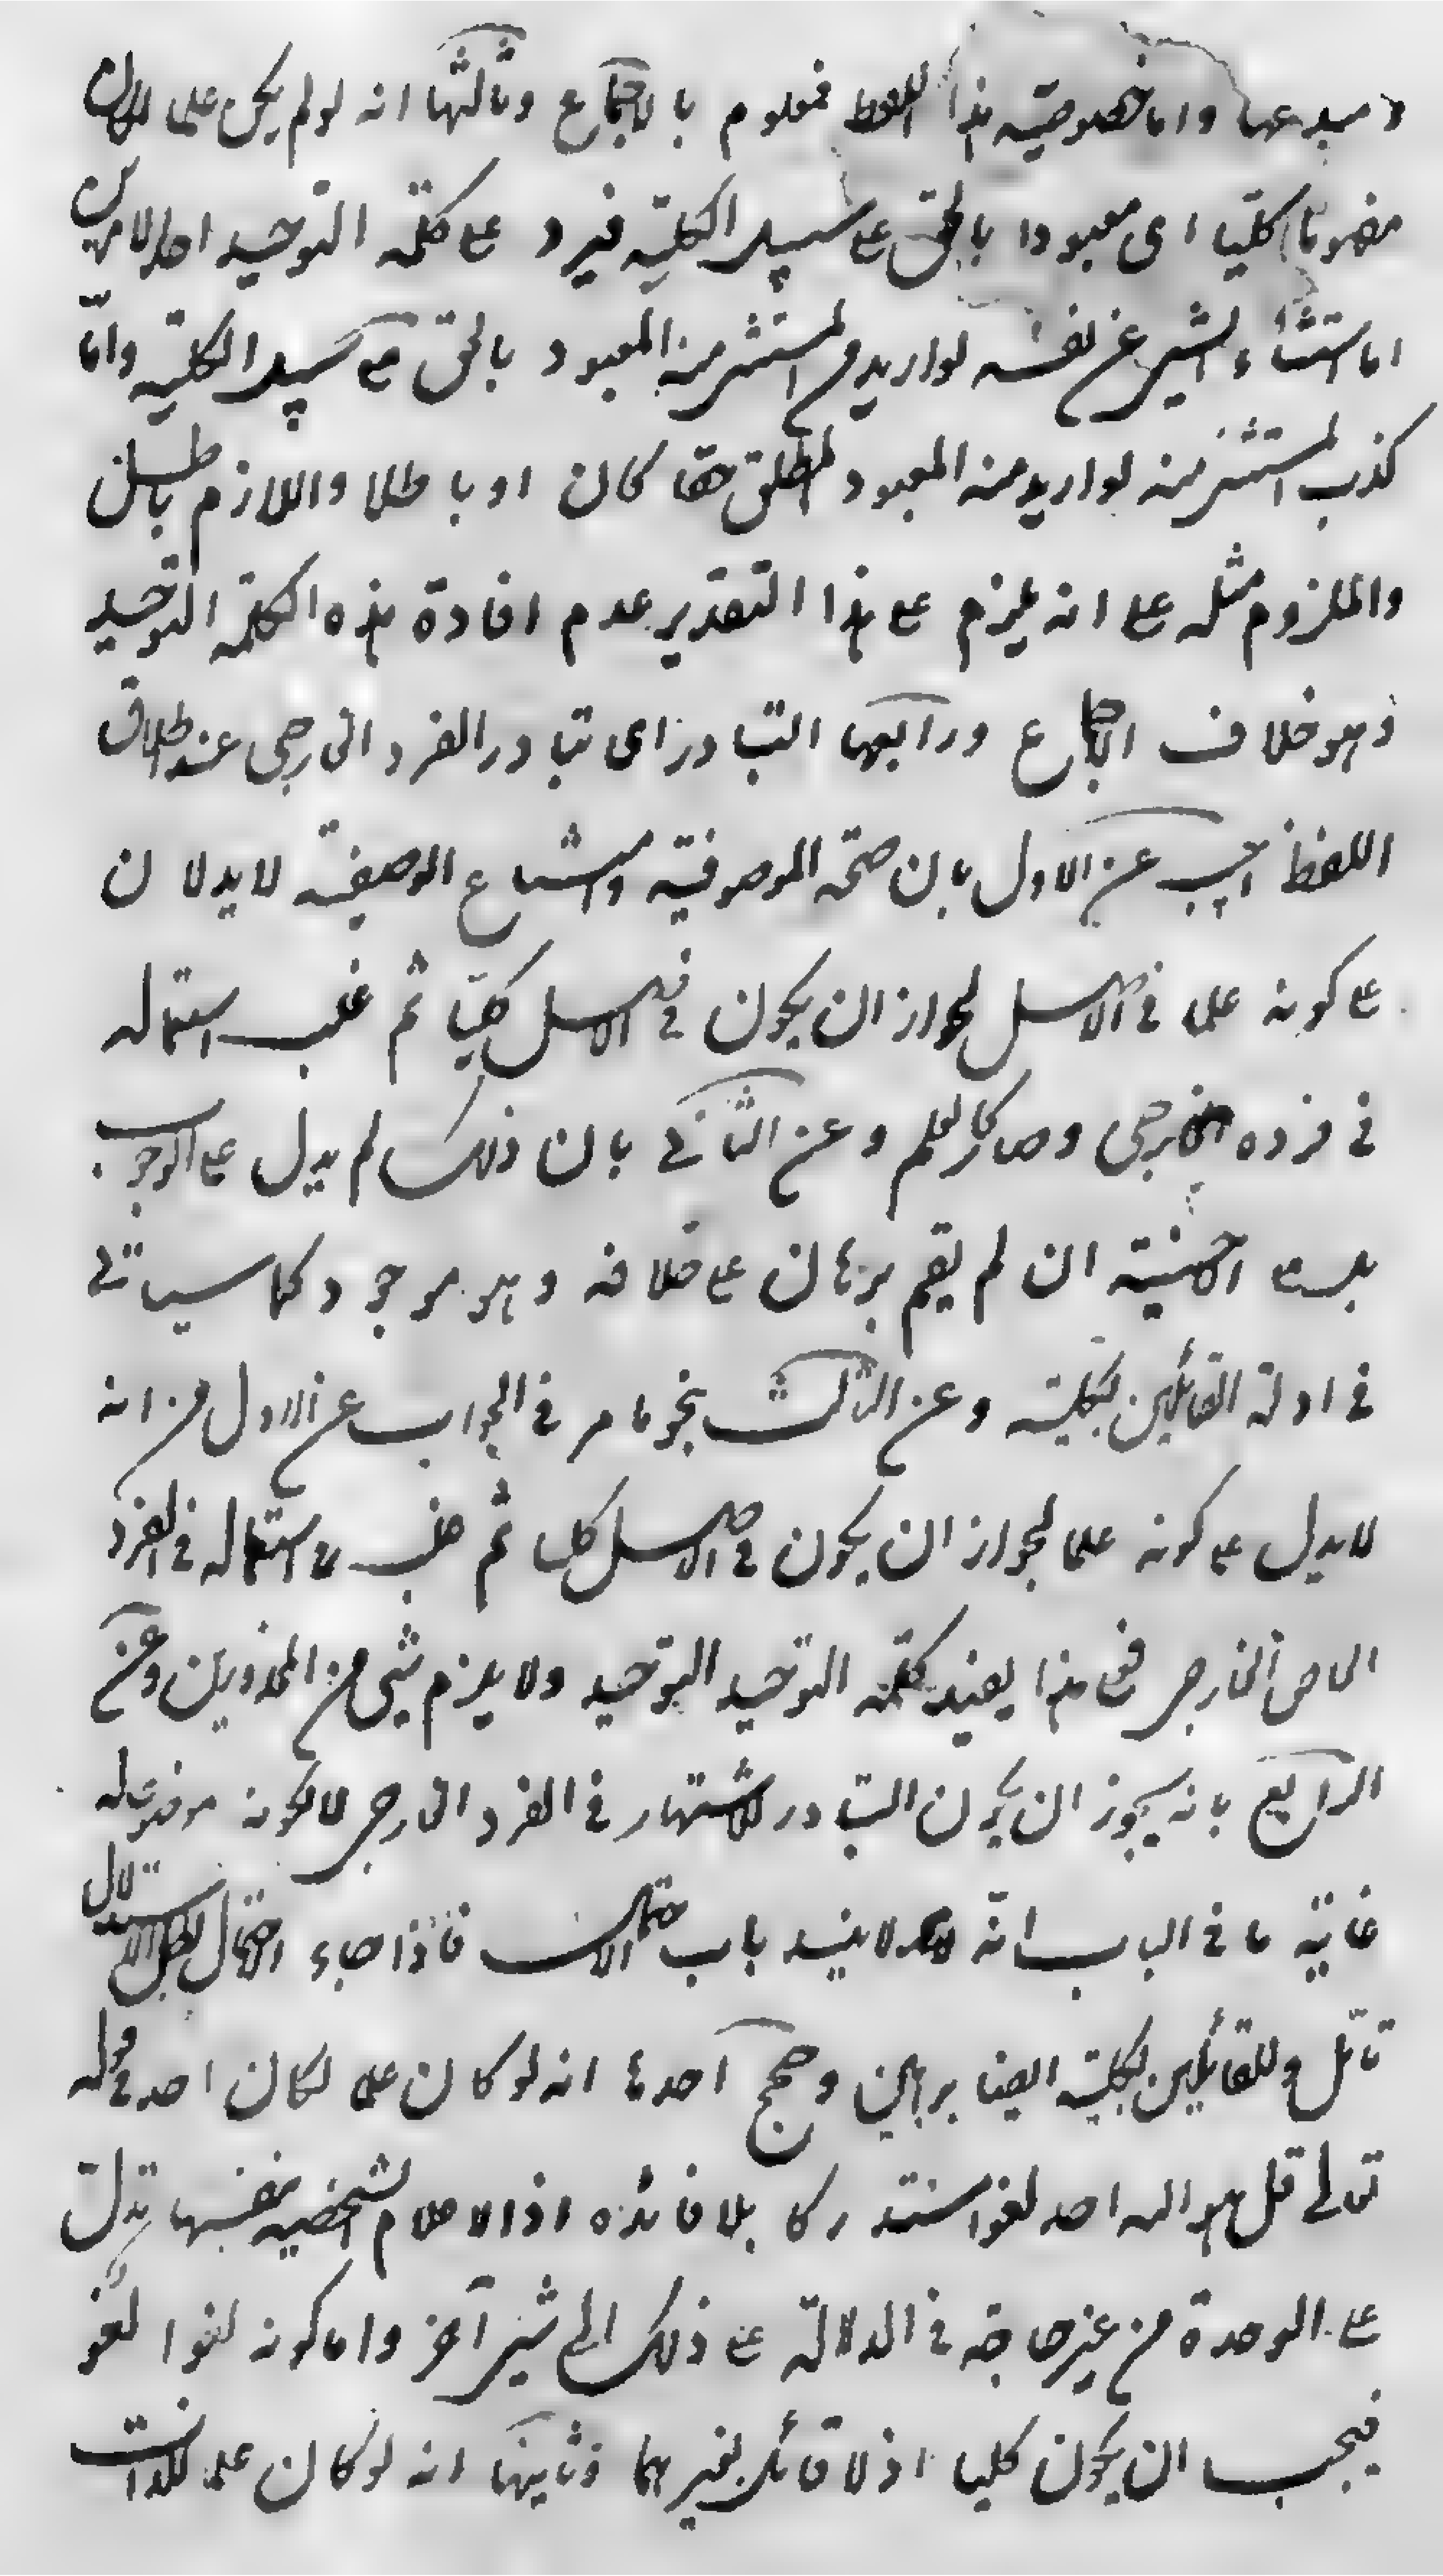 ومبدعها واما خصوصية هذا اللفظ فمعلوم بالاجماع وثالثها انه لو لم يكن علما لكان
مفهوما كليا اى معبودا بالحق على سبيل الكلية فيرد على كلمة التوحيد احد الامرين
اما استثناء الشئ عن نفسه لو اريد من المستثنى منه المعبود بالحق على سبيل الكلية واما
كذب المستثنى منه لو اريد منه المعبود المطلق حقا كان او باطلا واللازم باطل
والملزوم مثله على انه يلزم على هذا التقدير عدم افادة هذه الكلمة التوحيد
وهو خلاف الاجماع ورابعها التبادر اى تبادر الفرد الخارجى عند اطلاق
اللفظ اجيب عن الاول بان صحة الموصوفية وامتناع الوصفية لا يدلان
على كونه علما فى الاصل لجواز ان يكون فى الاصل كليا ثم غلب استعماله
فى فرده الخارجى وصار كالعلم وعن الثانى بان ذلك لم يدل على الوجوب
بل على الاحسنية ان لم يقم برهان على خلافه وهو موجود كما سياتى
فى ادلة القائلين بكليته وعن الثالث بنحو ما مر فى الجواب عن الاول من انه
لا يدل على كونه علما لجواز ان يكون فى الاصل كليا ثم غلب استعماله فى الفرد
الخاص الخارجى فعلى هذا يفيد كلمة التوحيد التوحيد ولا يلزم شئ من المحذورين وعن
الرابع بانه يجوز ان يكون التبادر للاشتهار فى الفرد الخارجى لا لكونه موضوعا له
غاية ما فى الباب انه لا ينسد باب الاحتمال فاذا جاء الاحتمال بطل الاستدلال
تامل وللقائلين بكليته ايضا براهين وحجج احدها انه لو كان علما لكان احد فى قوله
تعالى قل هو الله احد لغوا مستدركا بلا فائدة اذ الاعلام الشخصية بنفسها تدل
على الوحدة من غير حاجة فى الدلالة على ذلك الى شئ آخر واما كونه لغوا لغو
فيجب ان يكون كليا اذ لا قائل بغيرهما وثانيها انه لو كان علما للذات